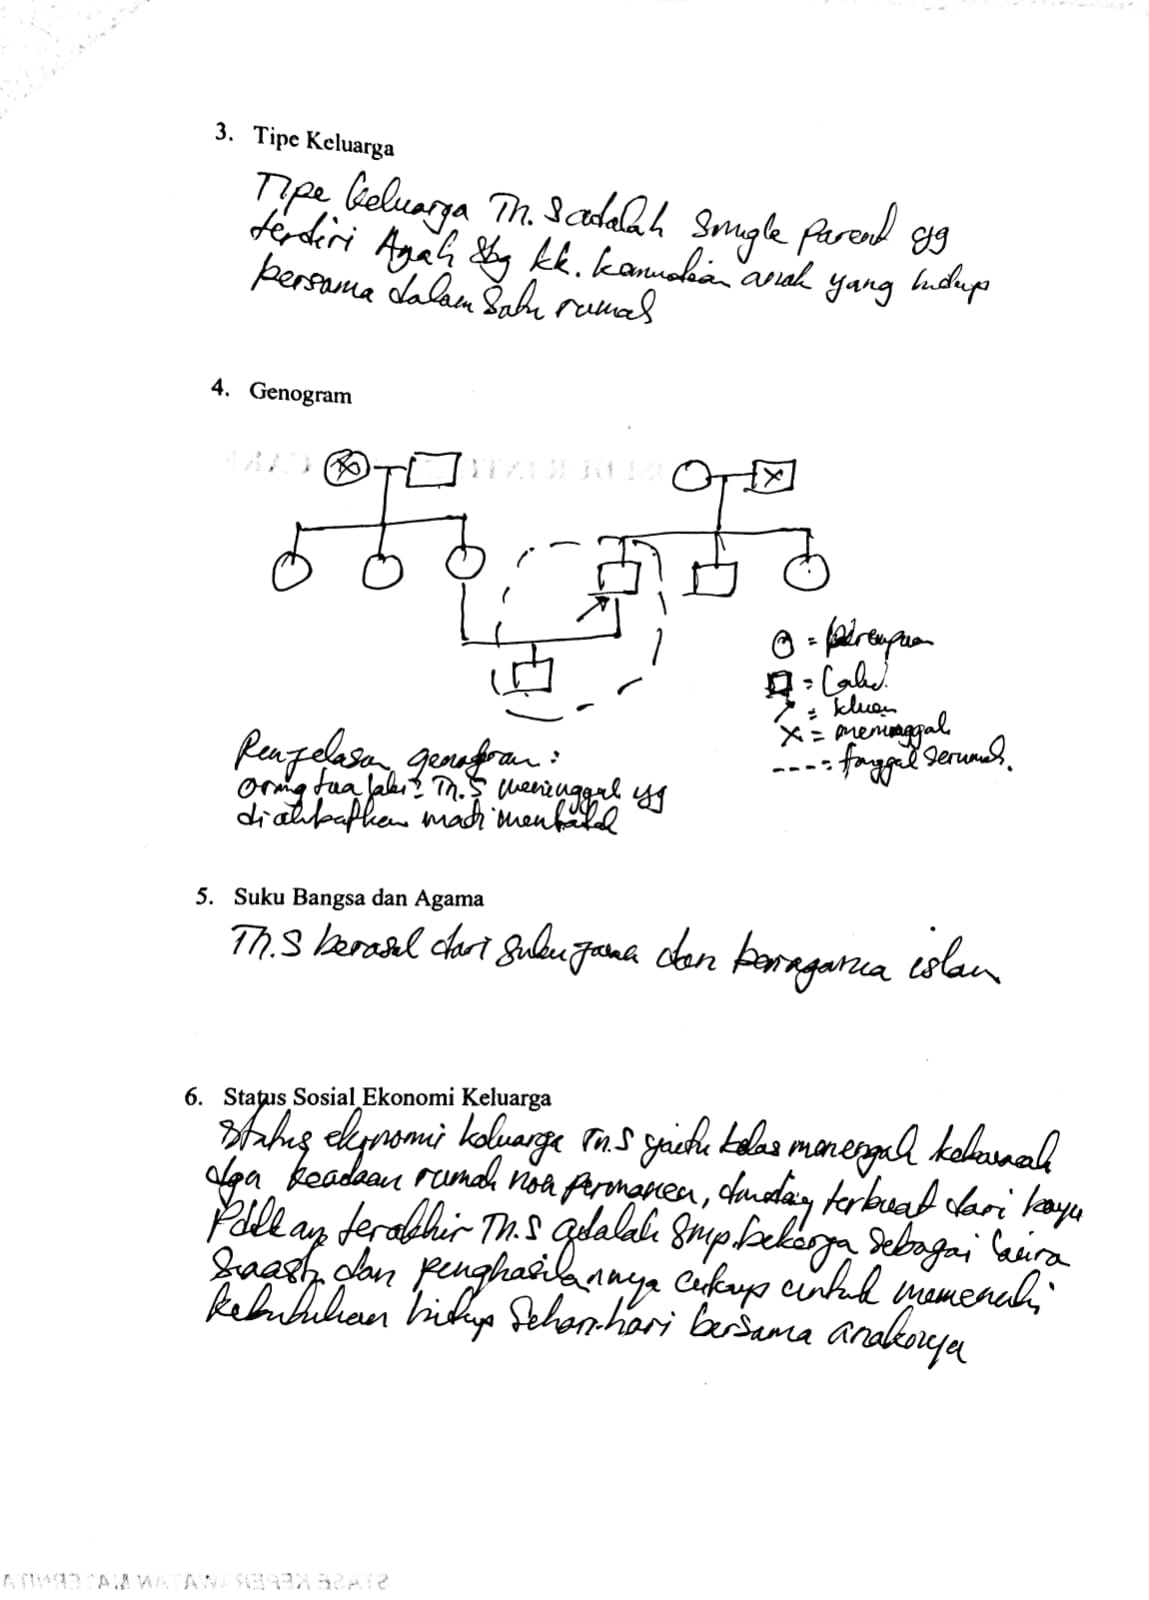 3. Tipe Keluarga
Tipe keluarga Tn. S adalah Single Parent yg
terdiri Ayah sbg kk. kemudian anak yang hidup
bersama dalam satu rumah
4. Genogram
= perempuan
= Laki.
= klien
X = meninggal
---- = tinggal serumah.
Penjelasan genogram :
orang tua laki2 Tn. S meninggal yg
diakibatkan mati mendadak
5. Suku Bangsa dan Agama
Tn. S berasal dari suku jawa dan beragama islam
6. Status Sosial Ekonomi Keluarga
Status ekonomi keluarga Tn. S yaitu kelas menengah kebawah
dgn keadaan rumah non permanen, dinding terbuat dari kayu
terakhir Tn. S adalah smp. bekerja sebagai
dan penghasilannya cukup untuk memenuhi
kebutuhan hidup sehari-hari bersama anaknya
STASE KEPERAWATAN MATERNITA